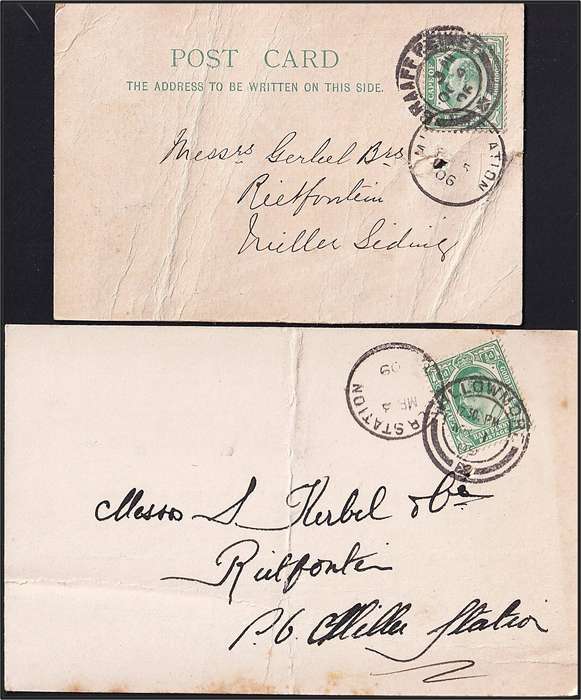 POST CARD
THE ADDRESS TO BE WRITTEN ON THIS SIDE.
CAPE OF
GRAAFF REINET
ATION
06
Messrs Gerbel Brs
Rietfontein
Miller Siding
09
MR
RSTATION
WILLOWMORE
30 PM
Messrs S. Kerbel & Co
Rietfontein
P.O. Miller Station